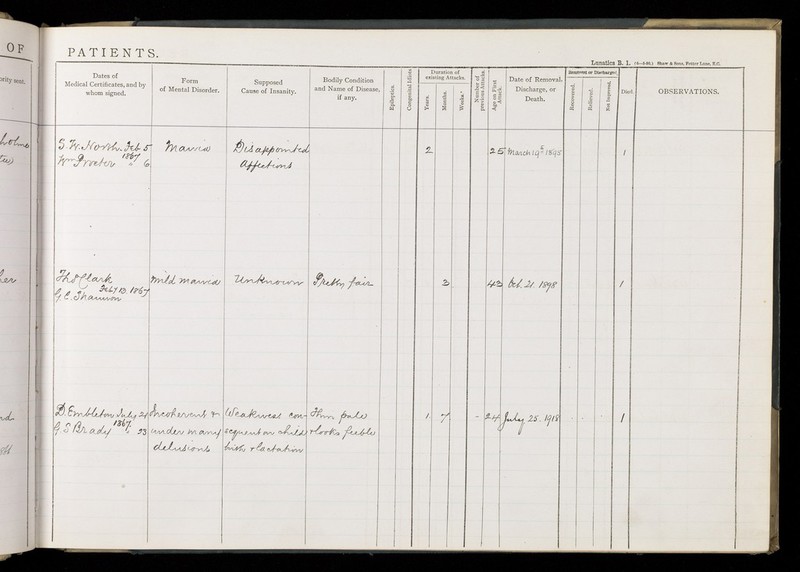 OF
PATIENTS.
Lunatics B. 1. Shaw & Sons, Fetter Lane, E.C.
Dates of
Medical Certificates, and by
whom signed.
Form
of Mental Disorder.
Supposed
Cause of Insanity.
Bodily Condition
and Name of Disease,
if any.
Epileptics.
Congenital Idiots
Duration of
existing Attacks.
Years.
Months.
Weeks.
Number of
previous Attacks.
Age on First
Attack.
Date of Removal,
Discharge, or
Death.
Removed or Discharged
Recovered.
Relieved.
Not Improved.
Died.
OBSERVATIONS.
S.W. North Feb 5 Mania Disappointed 2 25 March 19th 1898 1
Wm Procter 1867 " 6 Affections
Thos Clark Mild mania Unknown Pretty fair 3 43 Oct. 21. 1898 1
Feby 13. 1867
G.C. Shannon
D. Embleton July 24 Incoherent & Weakness con- Thin pale 1 7 - 24 July 25. 1918 1
G.S Brady 1867 " 23 under many sequent on child & looks feeble
delusions birth & lactation